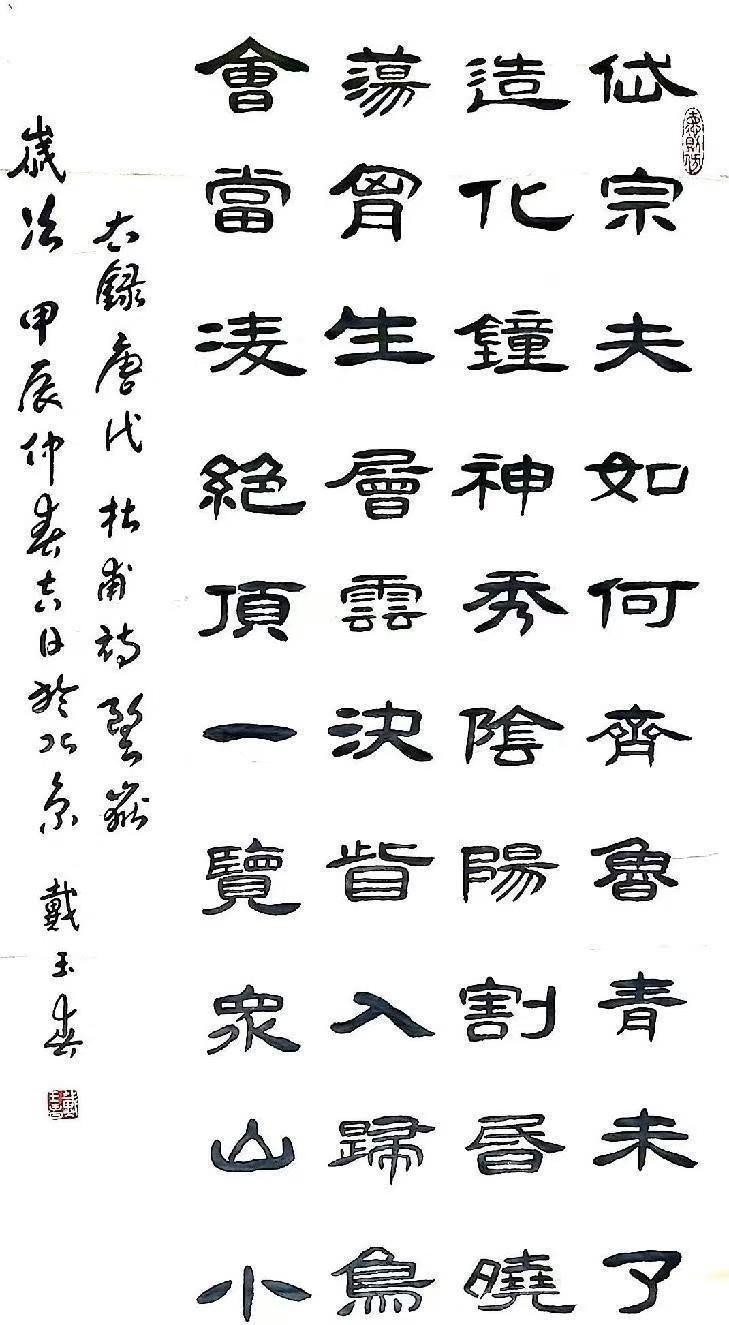 岱宗夫如何齊魯青未了
造化鐘神秀陰陽割昏曉
蕩胷生層雲決眥入歸鳥
會當凌絕頂一覽眾山小
右録唐代杜甫詩望嶽
歲次甲辰仲春吉日於北京戴玉春